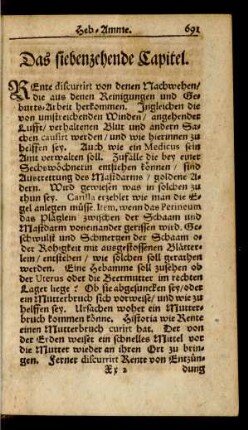 Heb-Amme. 691
Das siebenzehende Capitel.
REnte discurrirt von denen Nachwehen/
die aus denen Reinigungen und Ge-
burts-Arbeit herkommen. Ingleichen die
von umstreichenden Winden/ angehender
Lufft/ verhaltenen Blut und andern Sa-
chen causirt werden/ und wie hierinnen zu
helffen sey. Auch wie ein Medicus sein
Amt verwalten soll. Zufälle die bey einer
Sechswöchnerin entstehen können/ sind
Austrettung des Mastdarms/ goldene A-
dern. Wird gewiesen was in solchen zu
thun sey. Carilla erzehlet wie man die E-
gel anlegen müsse. Item, wenn das Perinæum
das Plätzlein zwischen der Schaam und
Mastdarm voneinander gerissen wird. Ge-
schwulst und Schmertzen der Schaam
der Rohigkeit mit ausgestossenen Blätter-
lein/ entstehen/ wie solchen soll gerathen
werden. Eine Hebamme soll zusehen ob
der Uterus oder die Beermutter im rechten
Lager liege? Ob sie abgesuncken sey/ oder
ein Mutterbruch sich vorweise/ und wie zu
helffen sey. Ursachen woher ein Mutter-
bruch kommen könne. Historia wie Rente
einen Mutterbruch curirt hat. Der von
der Erden weiset ein schnelles Mittel vor
die Mutter wieder an ihren Ort zu brin-
gen. Ferner discurrirt Rente von Entzün-
Xx 2 dung